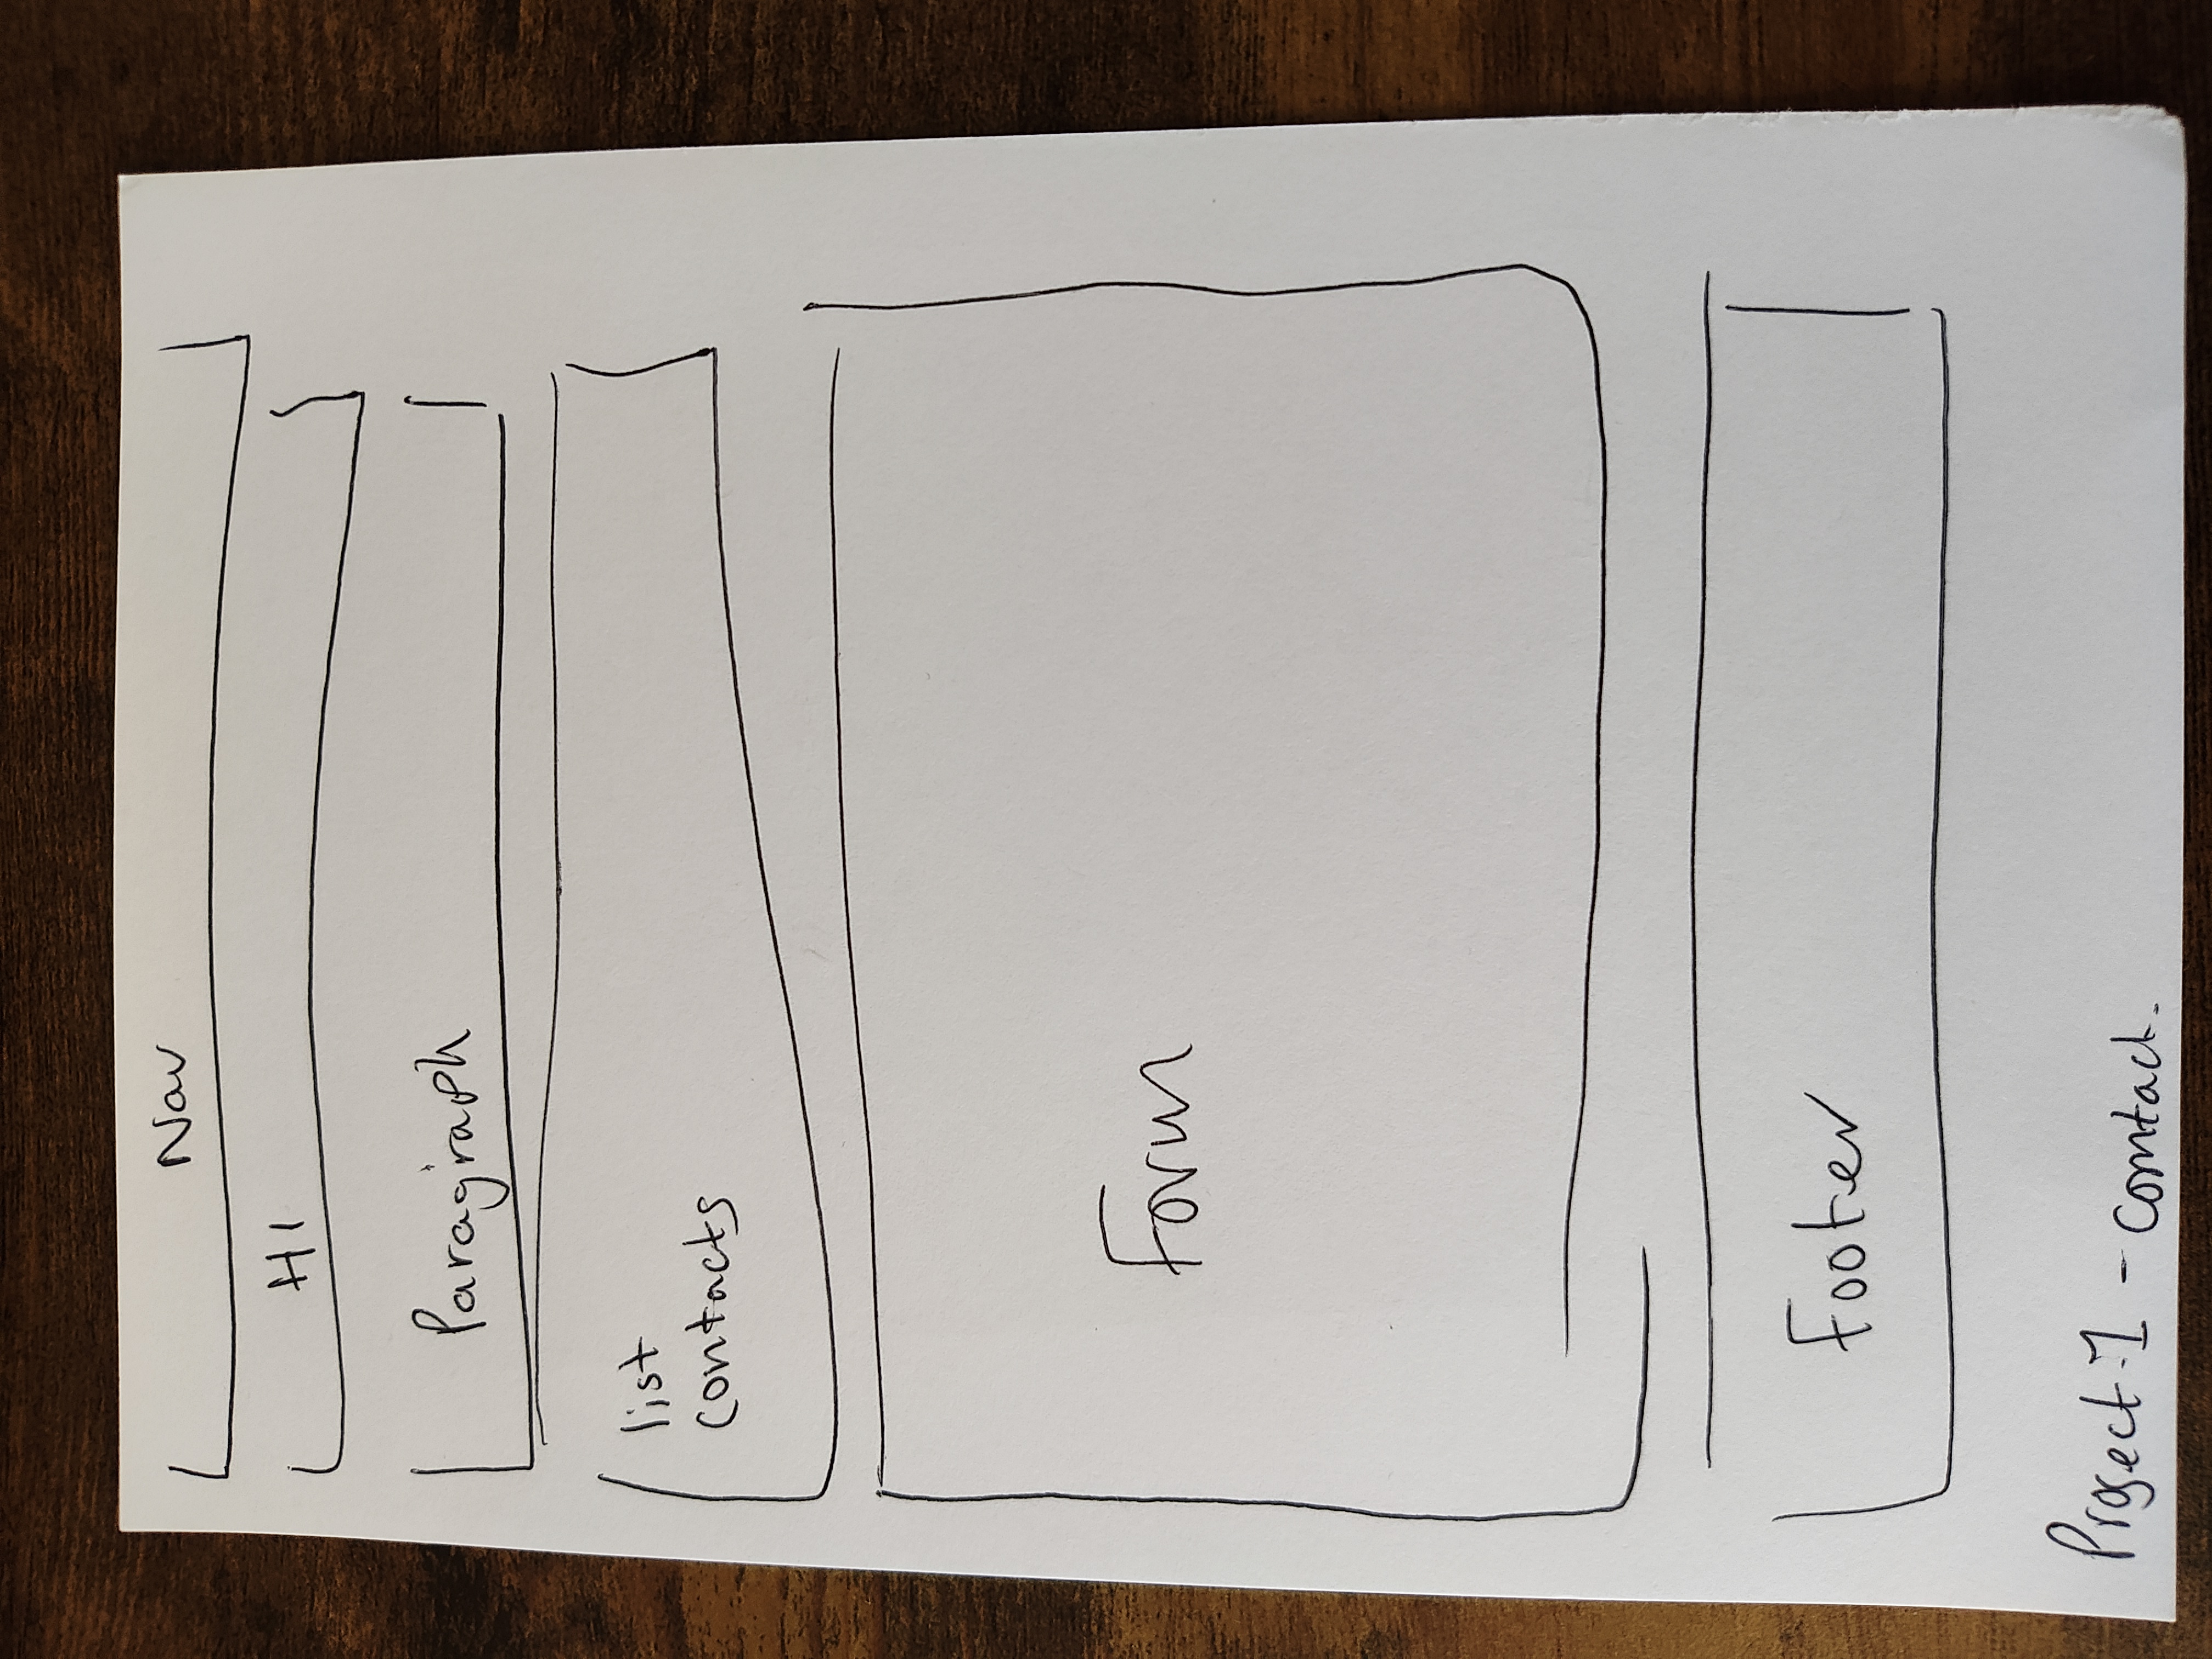 Nav
H1
Paragraph
list
contacts
Form
Footer
Project 1 - Comtact.